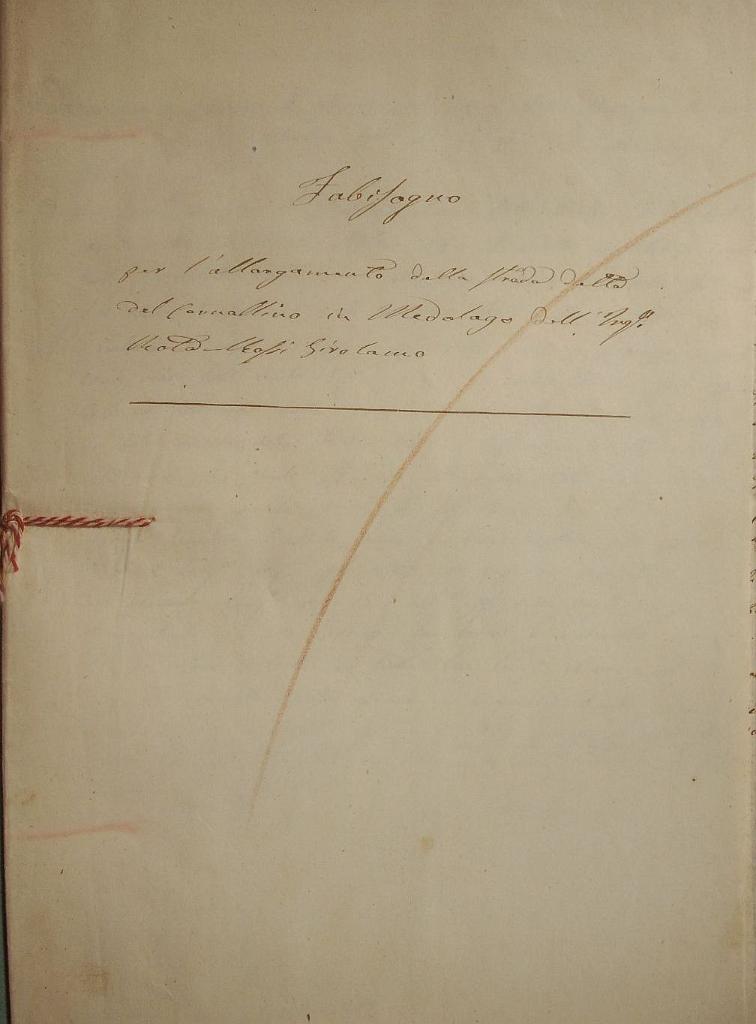 Fabisogno
per l'allargamento della strada detta
del Cornallino in Medolago dell' Ing.e
Rossi Girolamo